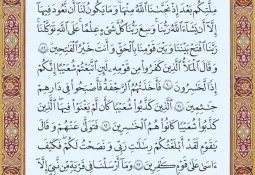 مِلَّتِكُم بَعْدَ إِذْ نَجَّىٰنَا ٱللَّهُ مِنْهَا وَمَا يَكُونُ لَنَآ أَن نَّعُودَ فِيهَآ
إِلَّآ أَن يَشَآءَ ٱللَّهُ رَبُّنَا وَسِعَ رَبُّنَا كُلَّ شَىْءٍ عِلْمًا عَلَى ٱللَّهِ تَوَكَّلْنَا
رَبَّنَا ٱفْتَحْ بَيْنَنَا وَبَيْنَ قَوْمِنَا بِٱلْحَقِّ وَأَنتَ خَيْرُ ٱلْفَٰتِحِينَ ٨٩
وَقَالَ ٱلْمَلَأُ ٱلَّذِينَ كَفَرُوا۟ مِن قَوْمِهِۦ لَئِنِ ٱتَّبَعْتُمْ شُعَيْبًا إِنَّكُمْ
إِذًا لَّخَٰسِرُونَ ٩٠ فَأَخَذَتْهُمُ ٱلرَّجْفَةُ فَأَصْبَحُوا۟ فِى دَارِهِمْ
جَٰثِمِينَ ٩١ ٱلَّذِينَ كَذَّبُوا۟ شُعَيْبًا كَأَن لَّمْ يَغْنَوْا۟ فِيهَا ٱلَّذِينَ
كَذَّبُوا۟ شُعَيْبًا كَانُوا۟ هُمُ ٱلْخَٰسِرِينَ ٩٢ فَتَوَلَّىٰ عَنْهُمْ وَقَالَ
يَٰقَوْمِ لَقَدْ أَبْلَغْتُكُمْ رِسَٰلَٰتِ رَبِّى وَنَصَحْتُ لَكُمْ فَكَيْفَ
ءَاسَىٰ عَلَىٰ قَوْمٍ كَٰفِرِينَ ٩٣ وَمَآ أَرْسَلْنَا فِى قَرْيَةٍ مِّن نَّبِىٍّ إِلَّآ